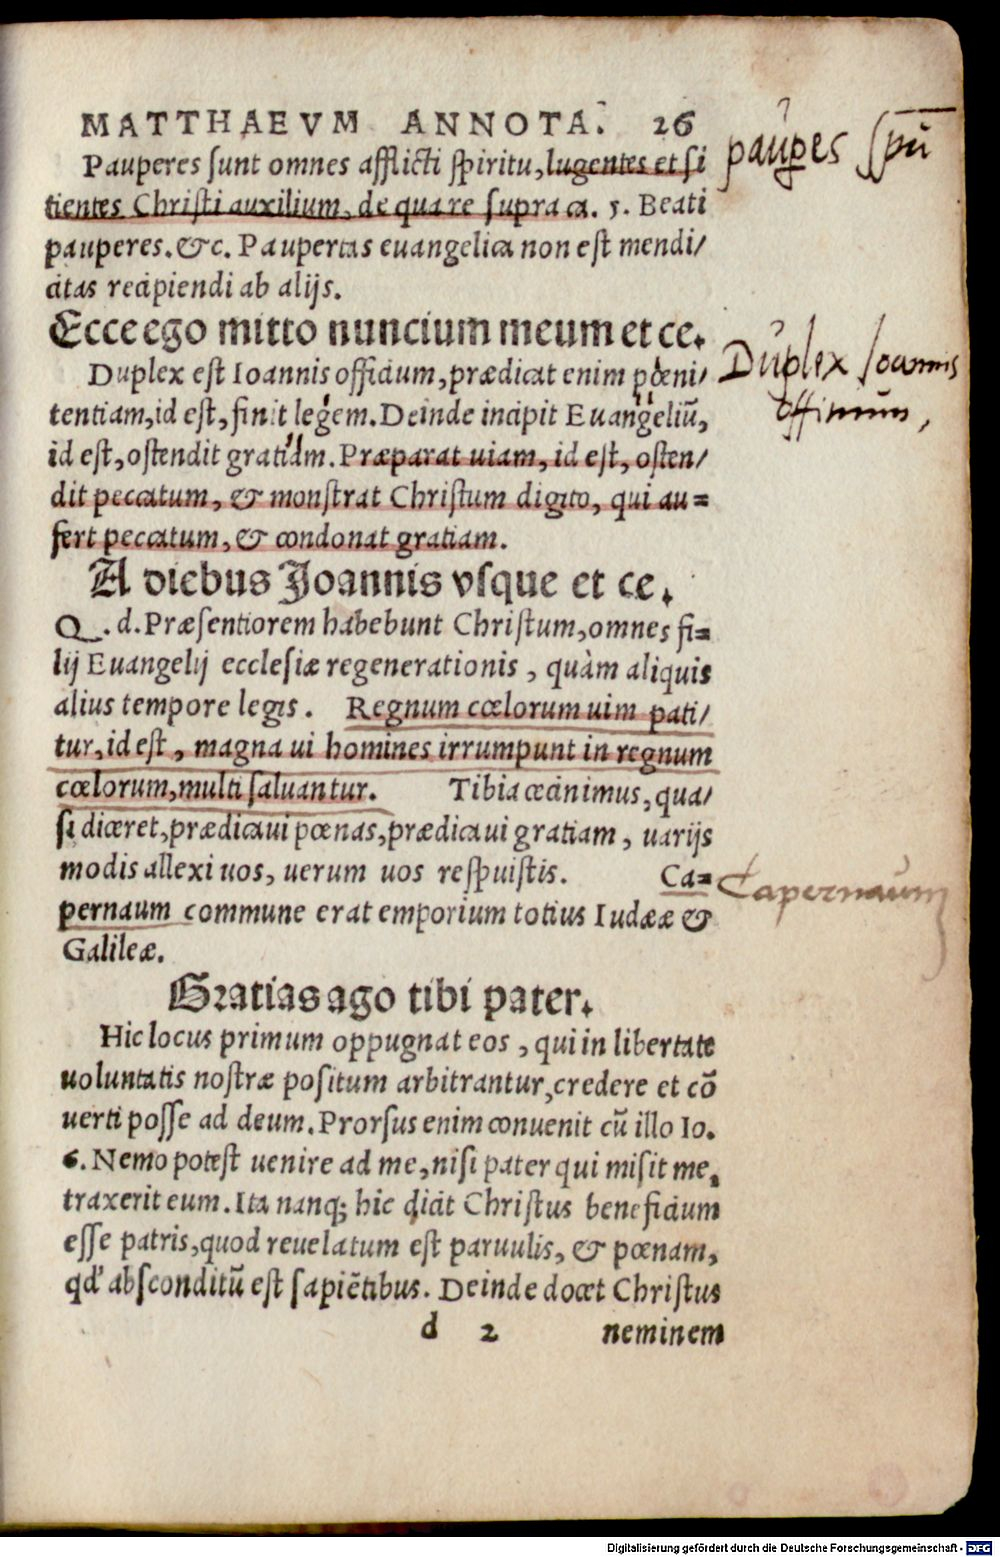 MATTHAEVM ANNOTA. 26
Pauperes sunt omnes afflicti spiritu, lugentes et si
tientes Christi auxilium, de qua re supra ca. 5. Beati
pauperes. &c. Paupertas euangelica non est mendi/
citas recipiendi ab alijs.
Ecce ego mitto nuncium meum et ce.
Duplex est Ioannis officium, prædicat enim pœni/
tentiam, id est, finit legem. Deinde incipit Euangeliũ,
id est, ostendit gratiam. Præparat uiam, id est, osten/
dit peccatum, & monstrat Christum digito, qui au=
fert peccatum, & condonat gratiam.
A diebus Joannis vsque et ce.
Q. d. Præsentiorem habebunt Christum, omnes fi=
lij Euangelij ecclesiæ regenerationis, quàm aliquis
alius tempore legis. Regnum cœlorum uim pati/
tur, id est, magna ui homines irrumpunt in regnum
cœlorum, multi saluantur. Tibia cecinimus, qua/
si diceret, prædicaui pœnas, prædicaui gratiam, uarijs
modis allexi uos, uerum uos respuistis. Ca=
pernaum commune erat emporium totius Iudææ &
Galileæ.
Gratias ago tibi pater.
Hic locus primum oppugnat eos, qui in libertate
uoluntatis nostræ positum arbitrantur, credere et cõ
uerti posse ad deum. Prorsus enim conuenit cũ illo Io.
6. Nemo potest uenire ad me, nisi pater qui misit me,
traxerit eum. Ita nanq; hic dicit Christus beneficium
esse patris, quod reuelatum est paruulis, & pœnam,
qd' absconditũ est sapiẽtibus. Deinde docet Christus
d 2 neminem
pauꝑes spũ
Duplex Ioannis
officium,
Capernaum
Digitalisierung gefördert durch die Deutsche Forschungsgemeinschaft - DFG